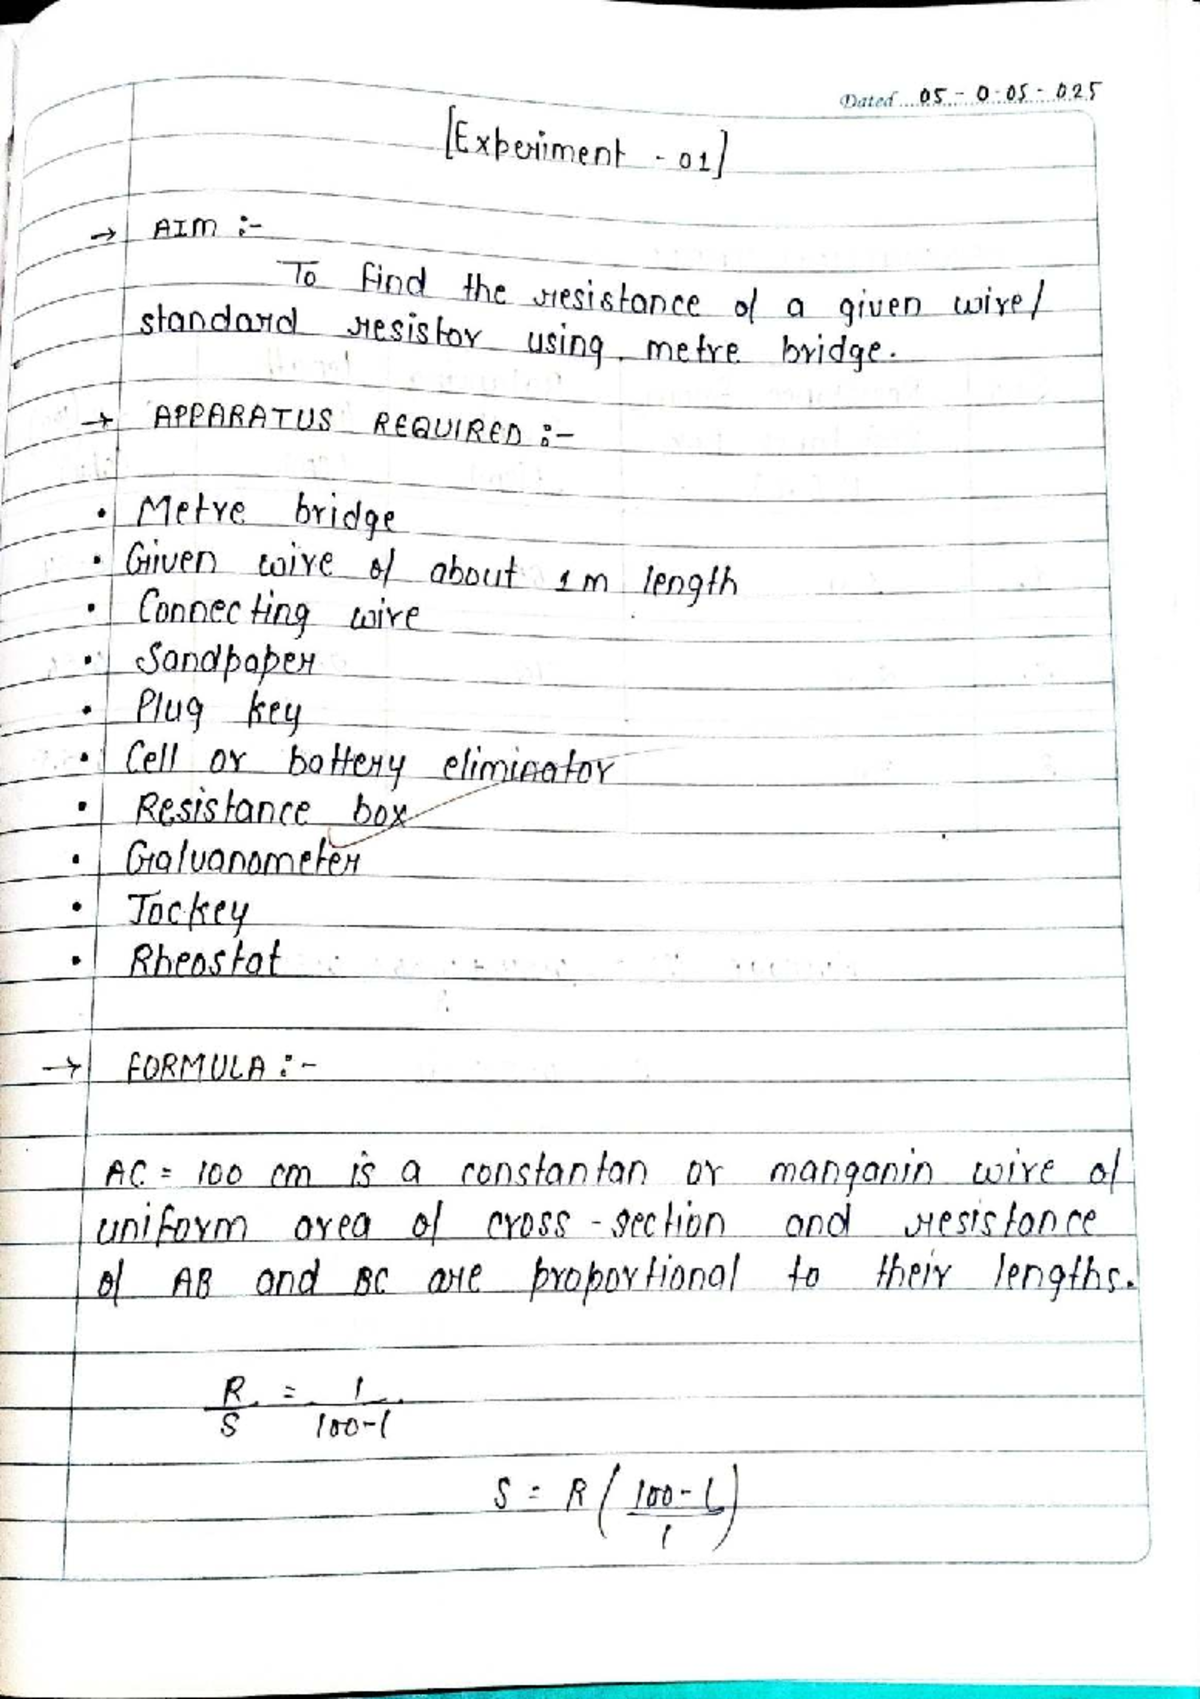 Dated 05-0-05-025
[Experiment - 01]
→ AIM :-
To find the resistance of a given wire/
standard resistor using metre bridge.
→ APPARATUS REQUIRED :-
• Metre bridge
• Given wire of about 1m length
• Connecting wire
• Sandpaper
• Plug key
• Cell or battery eliminator
• Resistance box
• Galvanometer
• Jockey
• Rheostat
→ FORMULA :-
AC = 100 cm is a constantan or manganin wire of
uniform area of cross-section and resistance
of AB and BC are proportional to their lengths.
R/S = l/100-l
S = R (100-l/l)